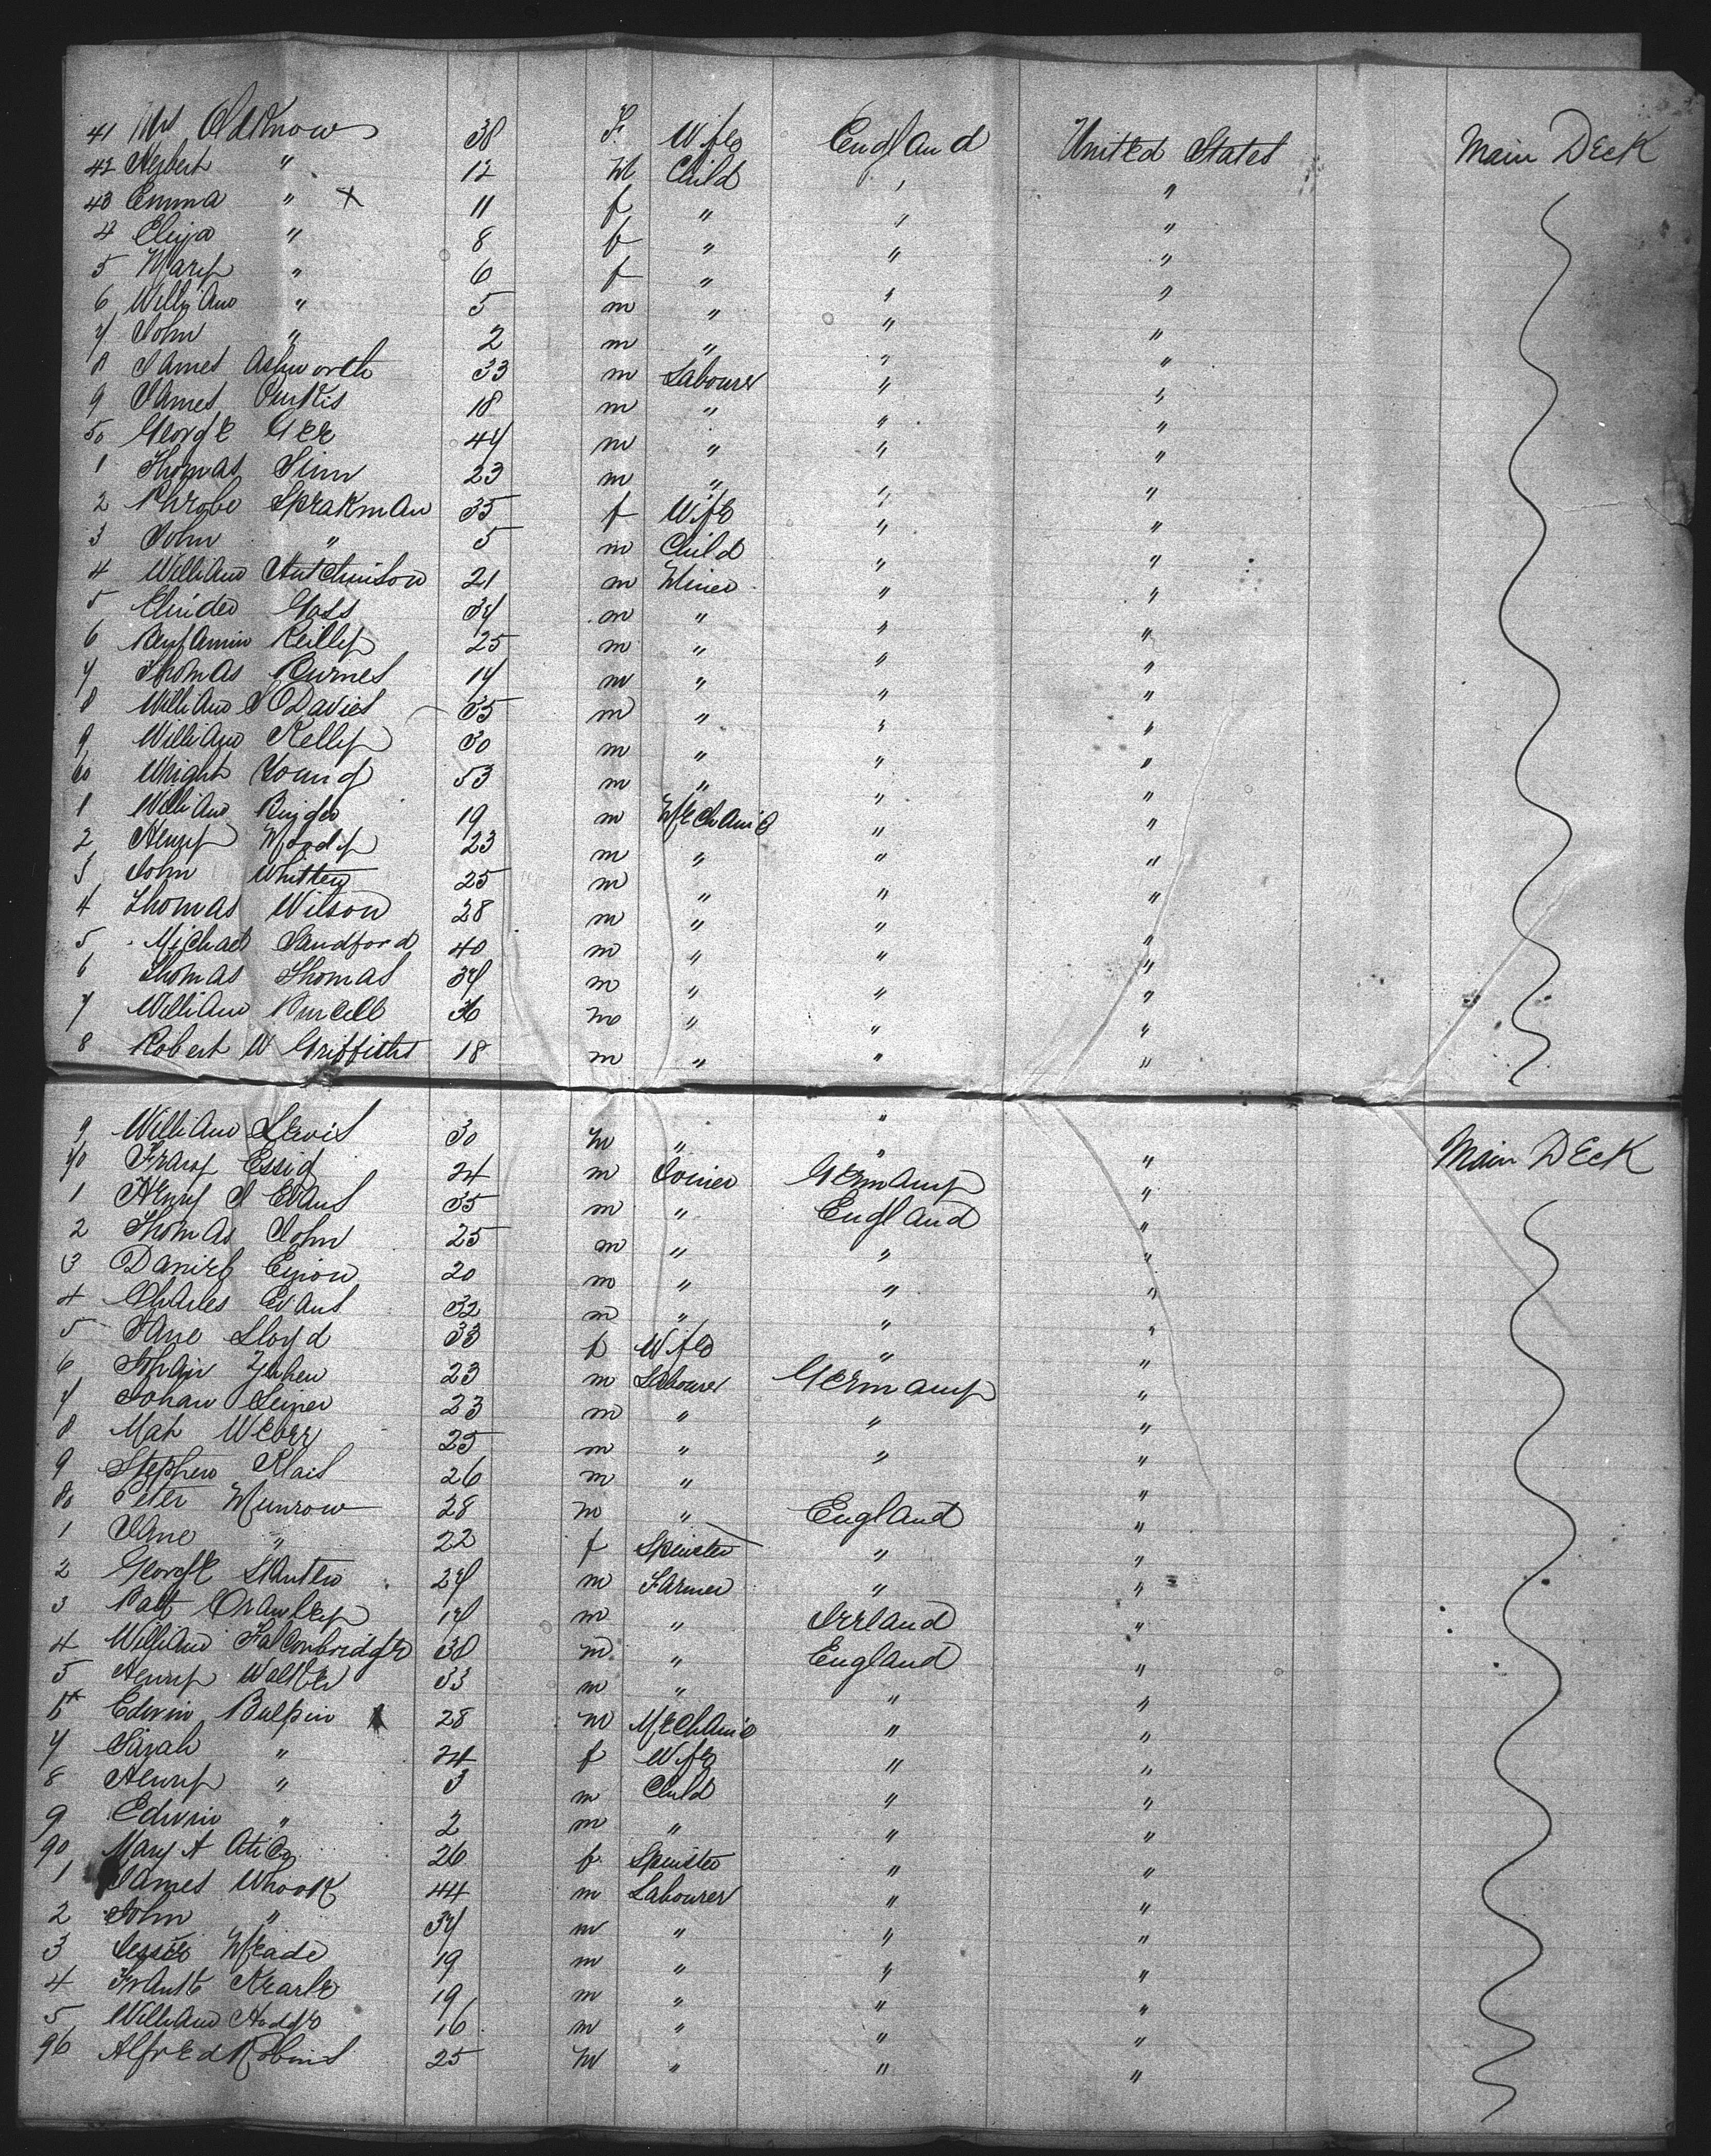 41 Mrs Oldknow 38 F. Wife England United States Main Deck
42 Herbert " 12 M Child " "
43 Emma " X 11 f " " "
4 Eliza " 8 f " " "
5 Mary " 6 f " " "
6 William " 5 m " " "
7 John " 2 m " " "
8 James Ashworth 33 m Labourer " "
9 James Purkis 18 m " " "
50 George Gee 47 m " " "
1 Thomas Simm 23 m " " "
2 Phoebe Speakman 35 f Wife " "
3 John " 5 m Child " "
4 William Hutchinson 21 m Miner " "
5 Goss 37 m " " "
6 Benjamin Reilly 25 m " " "
7 Thomas Burnes 17 m " " "
8 William J Davies 35 m " " "
9 William Kelly 30 m " " "
60 Wright Young 53 m " " "
1 William 19 m Mechanic " "
2 Henry Moody 23 m " " "
3 John Whitten 25 m " " "
4 Thomas Wilson 28 m " " "
5 Michael Sandford 40 m " " "
6 Thomas Thomas 37 m " " "
7 William Purcell 36 m " " "
8 Robert W Griffiths 18 m " " "
9 William Lewis 30 m " " " Main Deck
70 Franz Essig 24 m Joiner Germany "
1 Henry J Evans 35 m " England "
2 Thomas John 25 m " " "
3 Daniel Eynon 20 m " " "
4 Charles Evans 32 m " " "
5 Jane Lloyd 33 f Wife " "
6 23 m Labourer Germany "
7 Johan 23 m " " "
8 Mat Weber 25 m " " "
9 Stephen Klais 26 m " "
80 Peter Munrow 28 m " England "
1 Jane " 22 f Spinster " "
2 George Stanten 27 m Farmer " "
3 Patt Crawley 17 m " Ireland "
4 William Falconbridge 38 m " England "
5 Henry Walker 33 m " " "
6 Edwin Bulpin 28 m Mechanic " "
7 Sarah " 24 f Wife " "
8 Henry " 3 m Child " "
9 Edwin " 2 m " " "
90 Mary A 26 f Spinster " "
1 James Whook 44 m Labourer " "
2 John " 37 m " " "
3 Meade 19 m " " "
4 Frank Kearle 19 m " " "
5 William Hodge 16 m " " "
96 Alfred Robins 25 m " " "